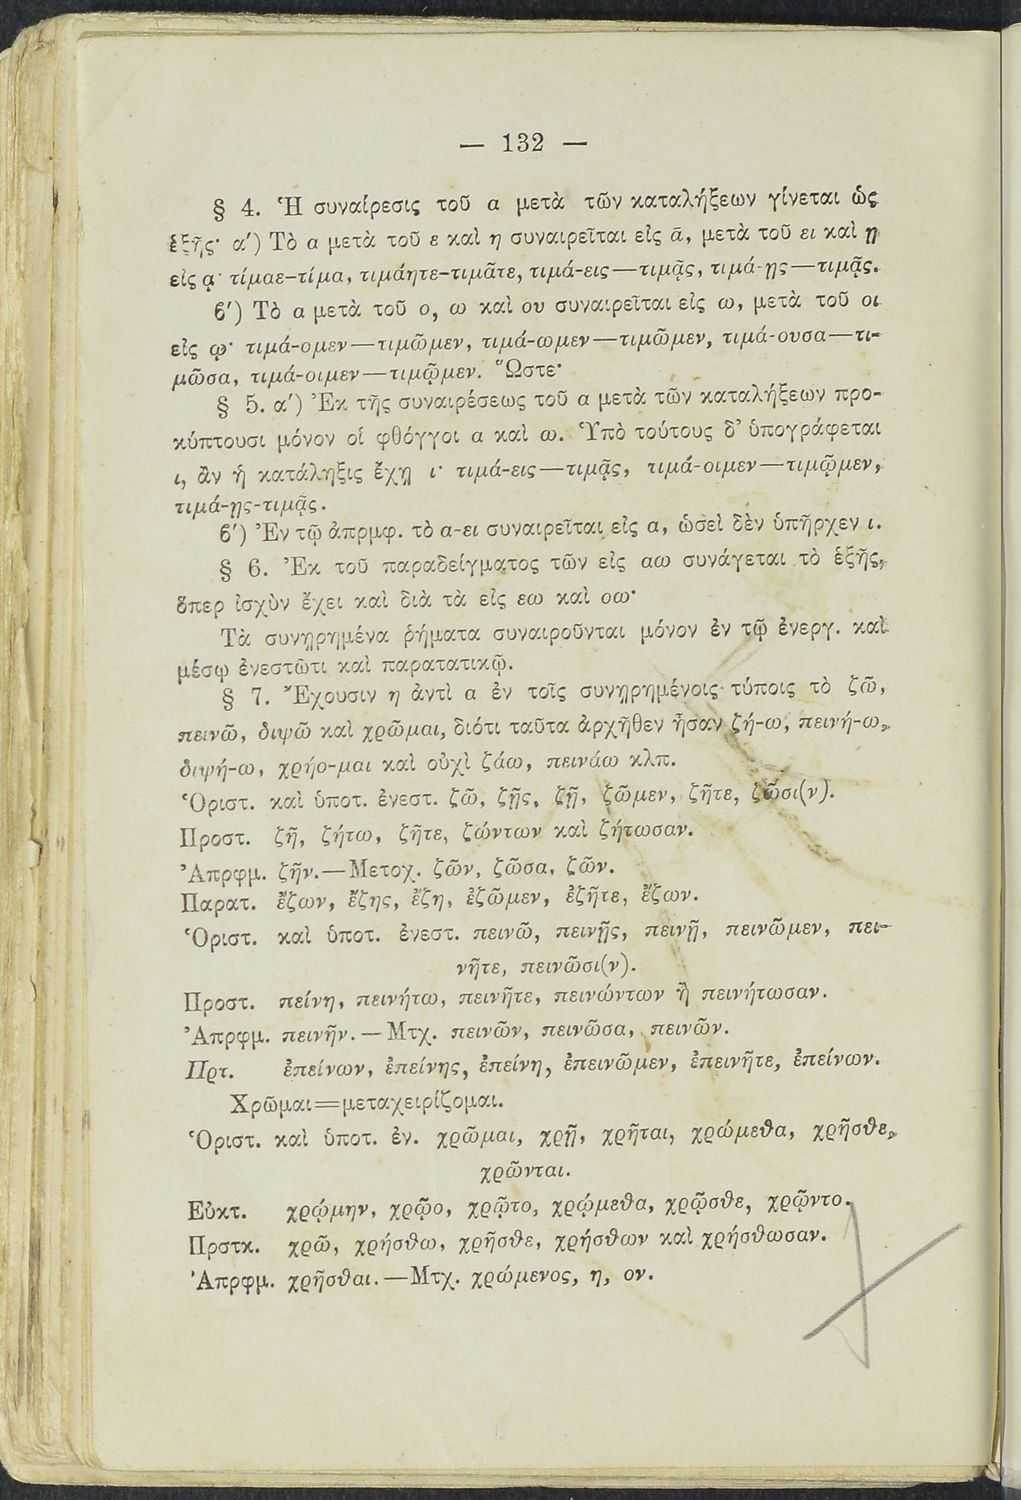 — 132 —
§ 4. Ἡ συναίρεσις τοῦ α μετὰ τῶν καταλήξεων γίνεται ὡς
ἑξῆς· α′) Τὸ α μετὰ τοῦ ε καὶ η συναιρεῖται εἰς ᾱ, μετὰ τοῦ ει καὶ ῃ
εἰς ᾳ· τίμαε–τίμα, τιμάητε-τιμᾶτε, τιμά-εις—τιμᾷς, τιμά-ῃς—τιμᾷς.
ϐ′) Τὸ α μετὰ τοῦ ο, ω καὶ ου συναιρεῖται εἰς ω, μετὰ τοῦ οι
εἰς ῳ· τιμά-ομεν—τιμῶμεν, τιμά-ωμεν—τιμῶμεν, τιμά-ουσα—τι-
μῶσα, τιμά-οιμεν—τιμῷμεν. Ὥστε·
§ 5. α′) Ἐκ τῆς συναιρέσεως τοῦ α μετὰ τῶν καταλήξεων προ-
κύπτουσι μόνον οἱ φθόγγοι α καὶ ω. Ὑπὸ τούτους δ’ ὑπογράφεται
ι, ἂν ἡ κατάληξις ἔχῃ ι· τιμά-εις—τιμᾷς, τιμά-οιμεν—τιμῷμεν,
τιμά-ῃς-τιμᾷς.
ϐ′) Ἐν τῷ ἀπρμφ. τὸ α-ει συναιρεῖται εἰς α, ὡσεὶ δὲν ὑπῆρχεν ι.
§ 6. Ἐκ τοῦ παραδείγματος τῶν εἰς αω συνάγεται τὸ ἑξῆς,
ὅπερ ἰσχὺν ἔχει καὶ διὰ τὰ εἰς εω καὶ οω·
Τὰ συνῃρημένα ῥήματα συναιροῦνται μόνον ἐν τῷ ἐνεργ. καὶ
μέσῳ ἐνεστῶτι καὶ παρατατικῷ.
§ 7. Ἔχουσιν η ἀντὶ α ἐν τοῖς συνῃρημένοις τύποις τὸ ζῶ,
πεινῶ, διψῶ καὶ χρῶμαι, διότι ταῦτα ἀρχῆθεν ἦσαν ζή-ω, πεινή-ω,
διψή-ω, χρήο-μαι καὶ οὐχὶ ζάω, πεινάω κλπ.
Ὁριστ. καὶ ὑποτ. ἐνεστ. ζῶ, ζῇς, ζῇ, ζῶμεν, ζῆτε, ζῶσι(ν).
Προστ. ζῆ, ζήτω, ζῆτε, ζώντων καὶ ζήτωσαν.
Ἀπρφμ. ζῆν.—Μετοχ. ζῶν, ζῶσα, ζῶν.
Παρατ. ἔζων, ἔζης, ἔζη, ἐζῶμεν, ἐζῆτε, ἔζων.
Ὁριστ. καὶ ὑποτ. ἐνεστ. πεινῶ, πεινῇς, πεινῇ, πεινῶμεν, πει-
νῆτε, πεινῶσι(ν).
Προστ. πείνη, πεινήτω, πεινῆτε, πεινώντων ἢ πεινήτωσαν.
Ἀπρφμ. πεινῆν.—Μτχ. πεινῶν, πεινῶσα, πεινῶν.
Πρτ. ἐπείνων, ἐπείνης, ἐπείνη, ἐπεινῶμεν, ἐπεινῆτε, ἐπείνων.
Χρῶμαι=μεταχειρίζομαι.
Ὁριστ. καὶ ὑποτ. ἐν. χρῶμαι, χρῇ, χρῆται, χρώμεθα, χρῆσθε,
χρῶνται.
Εὐκτ. χρῴμην, χρῷο, χρῷτο, χρῴμεθα, χρῷσθε, χρῷντο.
Πρστκ. χρῶ, χρήσθω, χρῆσθε, χρήσθων καὶ χρήσθωσαν.
Ἀπρφμ. χρῆσθαι.—Μτχ. χρώμενος, η, ον.